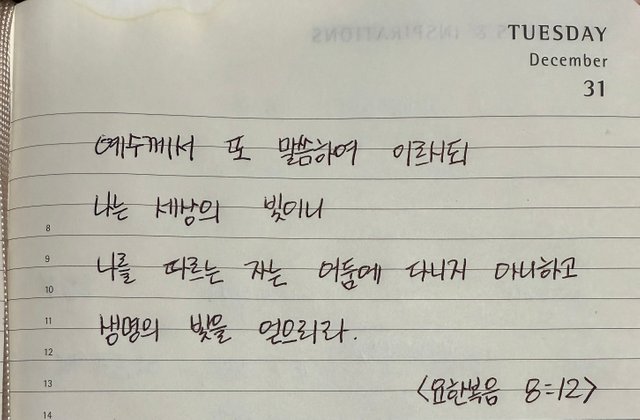 TUESDAY
December
31
예수께서 또 말씀하여 이르시되
나는 세상의 빛이니
8
나를 따르는 자는 어둠에 다니지 아니하고
9
10
생명의 빛을 얻으리라.
11
12
<요한복음 8:12>
13
14